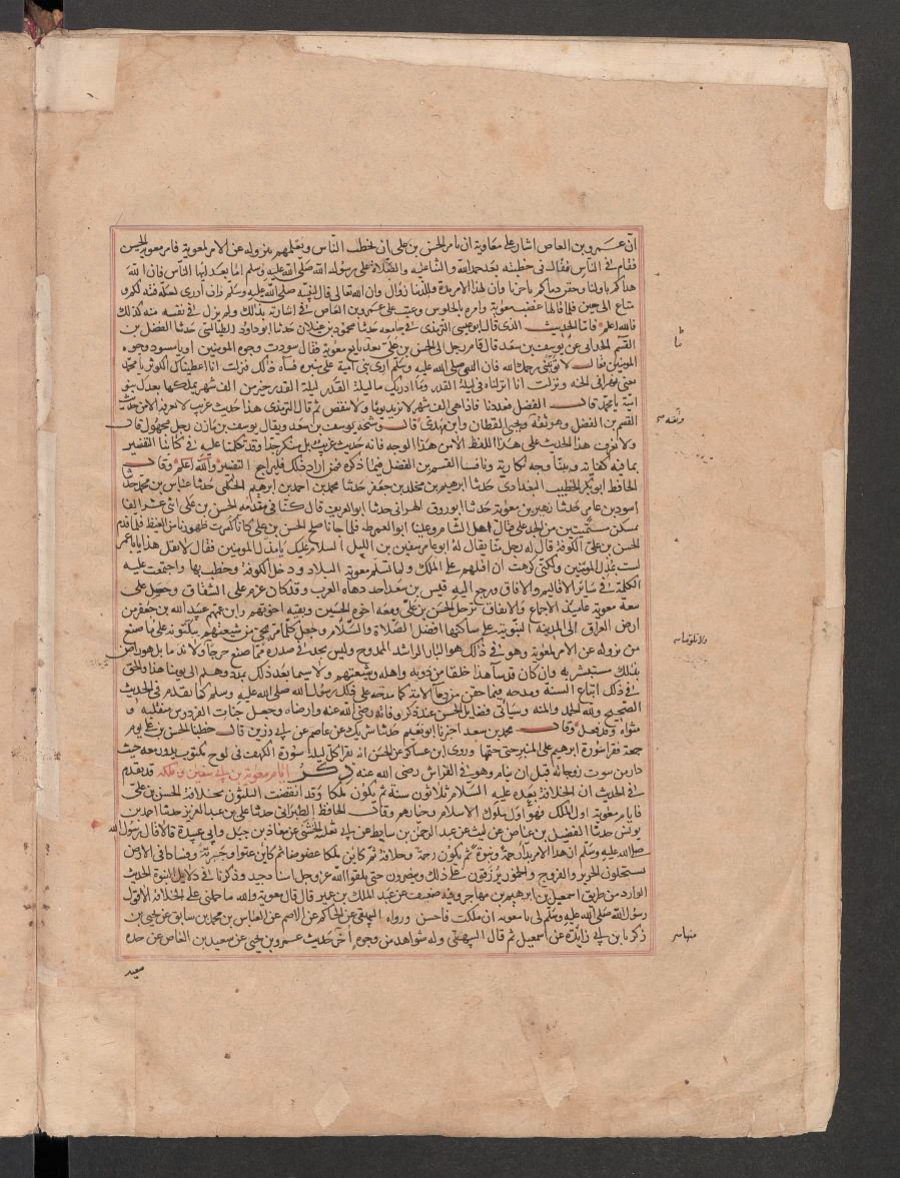 انّ عمرو بن العاص اشار على معاوية ان يامر الحسن بن على ان يخطب النّاس ويعلمهم بنزوله عن الامر لمعوية فامر معوية الحسن
فقام فى الناس فقال فى خطبته بعد حمد الله والثنا عليه والصّلاة على رسوله الله صلّى الله عليه وسلم اما بعد ايها النّاس فان الله
هداكم باولنا وحقن دماكم باخرنا وان لهذا الامر مدة والدنيا دول وان الله تعالى قال لنبيه صلى الله عليه وسلم وان ادرى لعله فتنة لكم و
متاع الى حين فلما قالها غضب معوية وامره بالجلوس وعتب على عمرو بن العاص فى اشارته بذلك ولم يزل فى نفسه منه كذلك
فالله اعلم فاما الحديث الذى قال ابو عيسى الترمذى فى جامعه حدثنا محمود بن غيلان حدثنا ابو داود الطيالسى حدثنا الفضل بن
القسم الحدانى عن يوسف بن سعد قال قام رجل الى الحسن بن على بعد بايع معوية فقال سودت وجوه المومنين او يا مسود وجوه
المومنين فقال لا تونبنى رحمك الله فان النبى صلى الله عليه وسلم ارى بنى امية على منبره فساه ذلك فنزلت انا اعطيناك الكوثر يا محمد
يعنى نهرا فى الجنه ونزلت انا انزلناه فى ليلة القدر وما ادريك ما ليلة القدر ليلة القدر خير من الف شهر يملكها بعدك بنو
امية يا محمد قال الفضل فعددنا فاذا هى الف شهر لا تزيد يوما ولا تنقص ثم قال الترمذى هذا حديث غريب لا نعرفه الا من حديث
القسم بن الفضل وهو ثقة وثقه يحيى القطان وابن مهدى قال وشيخه يوسف بن سعد ويقال يوسف بن مازن رجل مجهول قال
ولا نعرف هذا الحديث على هذا اللفظ الا من هذا الوجه فانه حديث غريب بل منكر جدا وقد تكلمنا عليه فى كتابنا التفسير
بما فيه كفاية وبينا وجه نكارته وناقشنا القسم بن الفضل فيما ذكره فمن اراد ذلك فليراجع التفسير والله اعلم وقال
الحافظ ابو بكر الخطيب البغدادى حدثنا ابراهيم بن مخلد بن جعفر حدثنا محمد بن احمد بن ابرهيم الحكمى حدثنا عباس بن محمد حدثنا
اسود بن عامر حدثنا زهير بن معوية حدثنا ابو روق الهمدانى حدثنا ابو العريف قال كنا فى مقدمة الحسن بن على اثنى عشر الفا
بمسكن مستميتين من الجد على قتال اهل الشام وعلينا ابو العمرطه فلما جانا صلح الحسن بن على كانما كسرت ظهورنا من الغيظ فلما قدم
الحسن بن على الكوفة قال له رجل منا يقال له ابو عامر سفين بن الليل السلام عليك يا مذل المومنين فقال لا تقل هذا يا با عامر
لست بمذل المومنين ولكنى كرهت ان اقتلهم على الملك ولما تسلم معوية البلاد ودخل الكوفة وخطب بها واجتمعت عليه
الكلمة فى سائر الاقاليم والافاق ورجع اليه قيس بن سعد احد دهاة العرب وقد كان عزم على الشقاق وحصل على
بيعة معوية عامئذ الاجماع والاتفاق ترحل الحسن بن على ومعه اخوه الحسين وبقيه اخوتهم وابن عمهم عبد الله بن جعفر من
ارض العراق الى المدينة النبوية على ساكنها افضل الصلاة والسلام وجعل كلما مر بحى من شيعتهم يبكتونه على ما صنع
من نزوله عن الامر لمعوية وهو فى ذلك هو البار الراشد الممدوح وليس يجد فى صدره مما صنع حرجا ولا ندما بل هو راض
بذلك مستبشر به وان كان قد ساء هذا خلقا من ذويه واهله وشيعتهم ولا سيما بعد ذلك بمدد وهلم الى يومنا هذا والحق
فى ذلك اتباع السنة ومدحه فيما حقن من دما الامة كما مدحه على ذلك رسول الله صلى الله عليه وسلم كما تقدم فى الحديث
الصحيح ولله الحمد والمنه وسياتى فضايل الحسن عند ذكر وفاته رضى الله عنه وارضاه وجعل جنات الفردوس متقلبه و
مثواه وقد فعل وقال محمد بن سعد اخبرنا ابو نعيم حدثنا شريك عن عاصم عن ابى رزين قال خطبنا الحسن بن على يوم
جمعة فقرا سورة ابرهيم على المنبر حتى ختمها وروى ابن عساكر عن الحسن انه يقرا كل ليلة سورة الكهف فى لوح مكتوب يدور معه حيث
دار من بيوت زوجاته قبل ان ينام وهو فى الفراش رضى الله عنه ذكر ايام معوية بن ابى سفين وملكه قد تقدم
فى الحديث ان الخلافة بعده عليه السلام ثلاثون سنة ثم يكون ملكا وقد انقضت الثلثون بخلافة الحسن بن على
فايام معوية اول الملك فهو اول ملوك الاسلام وخيارهم وقال الحافظ الطبرانى حدثنا على بن عبد العزيز حدثنا احمد بن
يونس حدثنا الفضيل بن عياض عن ليث عن عبد الرحمن بن سابط عن ابى ثعلبة الخشنى عن معاذ بن جبل وابى عبيدة قالا قال رسول الله
صلى الله عليه وسلم ان هذا الامر بدا رحمة ونبوة ثم يكون رحمة وخلافة ثم كاين ملكا عضوضا ثم كاين عتوا وجبرية وفسادا فى الارض
يستحلون الحرير والفروج والخمور يرزقون على ذلك وينصرون حتى يلقوا الله عز وجل اسناد جيد وذكرنا فى دلايل النبوة الحديث
الوارد من طريق اسمعيل بن ابرهيم بن مهاجر وفيه ضعيف عن عبد الملك بن عمير قال قال معوية والله ما حملنى على الخلافة الا قول
رسول الله صلى الله عليه وسلم لى يا معويه ان ملكت فاحسن ورواه البيهقى عن الحاكم عن الاصم عن العباس بن محمد بن سابق عن يحيى بن
زكريا بن ابى زايدة عن اسمعيل ثم قال البيهقى وله شواهد من وجوه اخر حديث عمرو بن يحيى عن سعيد بن العاص عن جده
سعيد